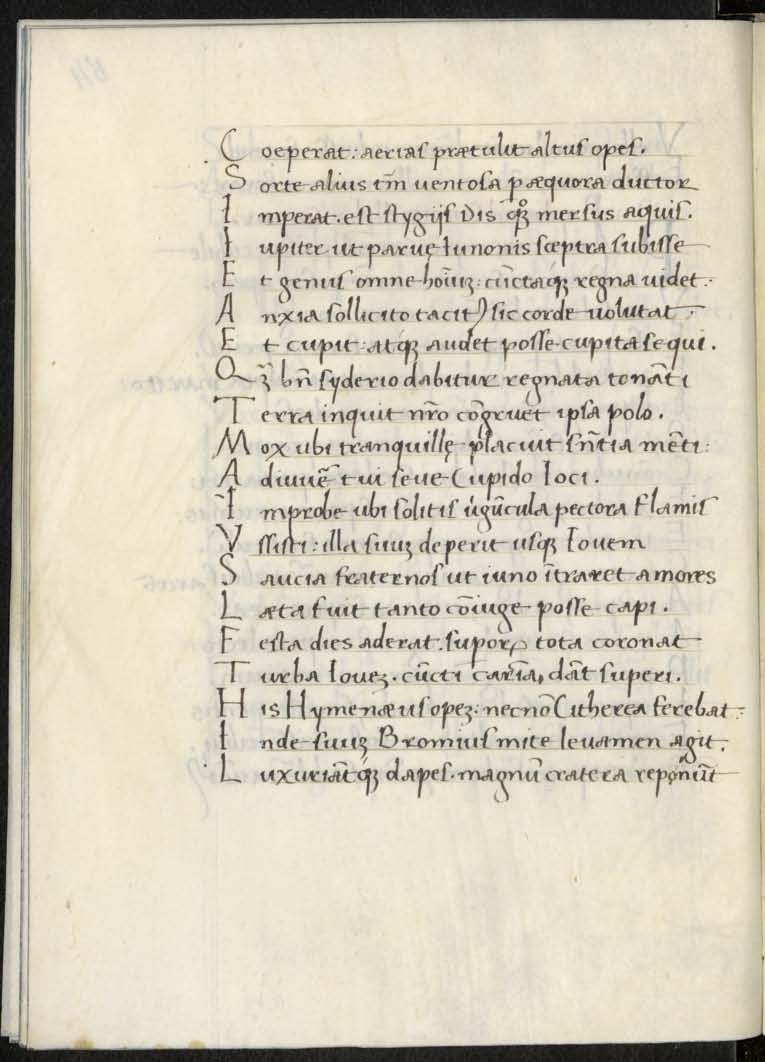 Coeperat: aerias prætulit altus opes.
Sorte alius tm̄ uentosa p æquora ductor
Imperat. est stygijs Dis qq̊ mersus aquis.
Iupiter ut paruę Iunonis sceptra subisse
Et genus omne hoı̄uꝫ: cūctaqꝫ regna uidet.
Anxia sollicito tacitꝰ sic corde uolutat.
Et cupit: atqꝫ audet posse cupita sequi.
Qꝫ̄ bn̄ syderio dabitur regnata tonāti
Terra inquit nr̄o cōgruet ipsa polo.
Mox ubi tranquillę placuit sn̄tia mēti:
Adiuuēt tui seue Cupido Ioci.
Improbe ubi solitis iūgūcula pectora flamis
Vssisti: illa suuꝫ deperit usqꝫ Iouem
Saucia fraternos ut iuno ītraret amores
Læta fuit tanto cōiuge posse capi.
Festa dies aderat. supoꝝ tota coronat
Turba Ioueꝫ. cūcti dāt superi.
His Hymenæus opeꝫ: necnō Citherea ferebat:
Inde suuꝫ Bromius mite leuamen agit.
Luxuriātqꝫ dapes. magnū cratera reponūt